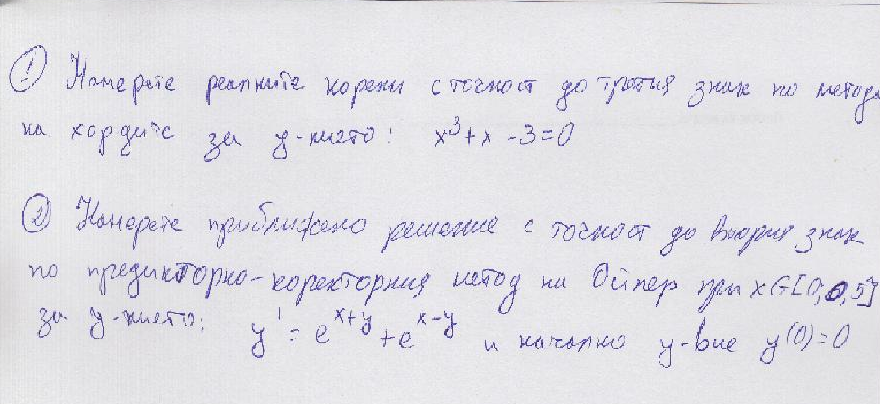 ① Намерете реалните корени с точност до третия знак по метода
на хордите за у-нието: x³+x-3=0
② Намерете приближено решение с точност до втория знак
по предикторно-коректорния метод на Ойлер при x∈[0;0,5]
за у-нието: y' = e^{x+y} + e^{x-y} и начално у-вие y(0)=0